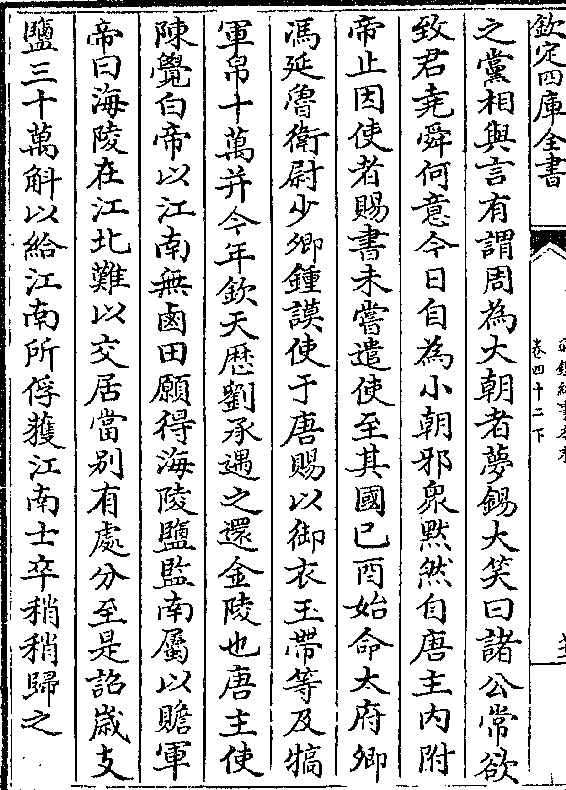 欽定四庫全書
卷四十二下
之黨相與言有謂周為大朝者夢錫大笑曰諸公常欲
致君堯舜何意今日自為小朝邪衆黙然自唐主内附
帝止因使者賜書未嘗遣使至其國已酉始命太府卿
馮延魯衛尉少卿鍾謨使于唐賜以御衣玉帶等及犒
軍帛十萬并今年欽天厯劉承遇之還金陵也唐主使
陳覺白帝以江南無鹵田願得海陵鹽監南屬以贍軍
帝曰海陵在江北難以交居當别有處分至是詔嵗支
鹽三十萬斛以給江南所俘獲江南士卒稍稍歸之